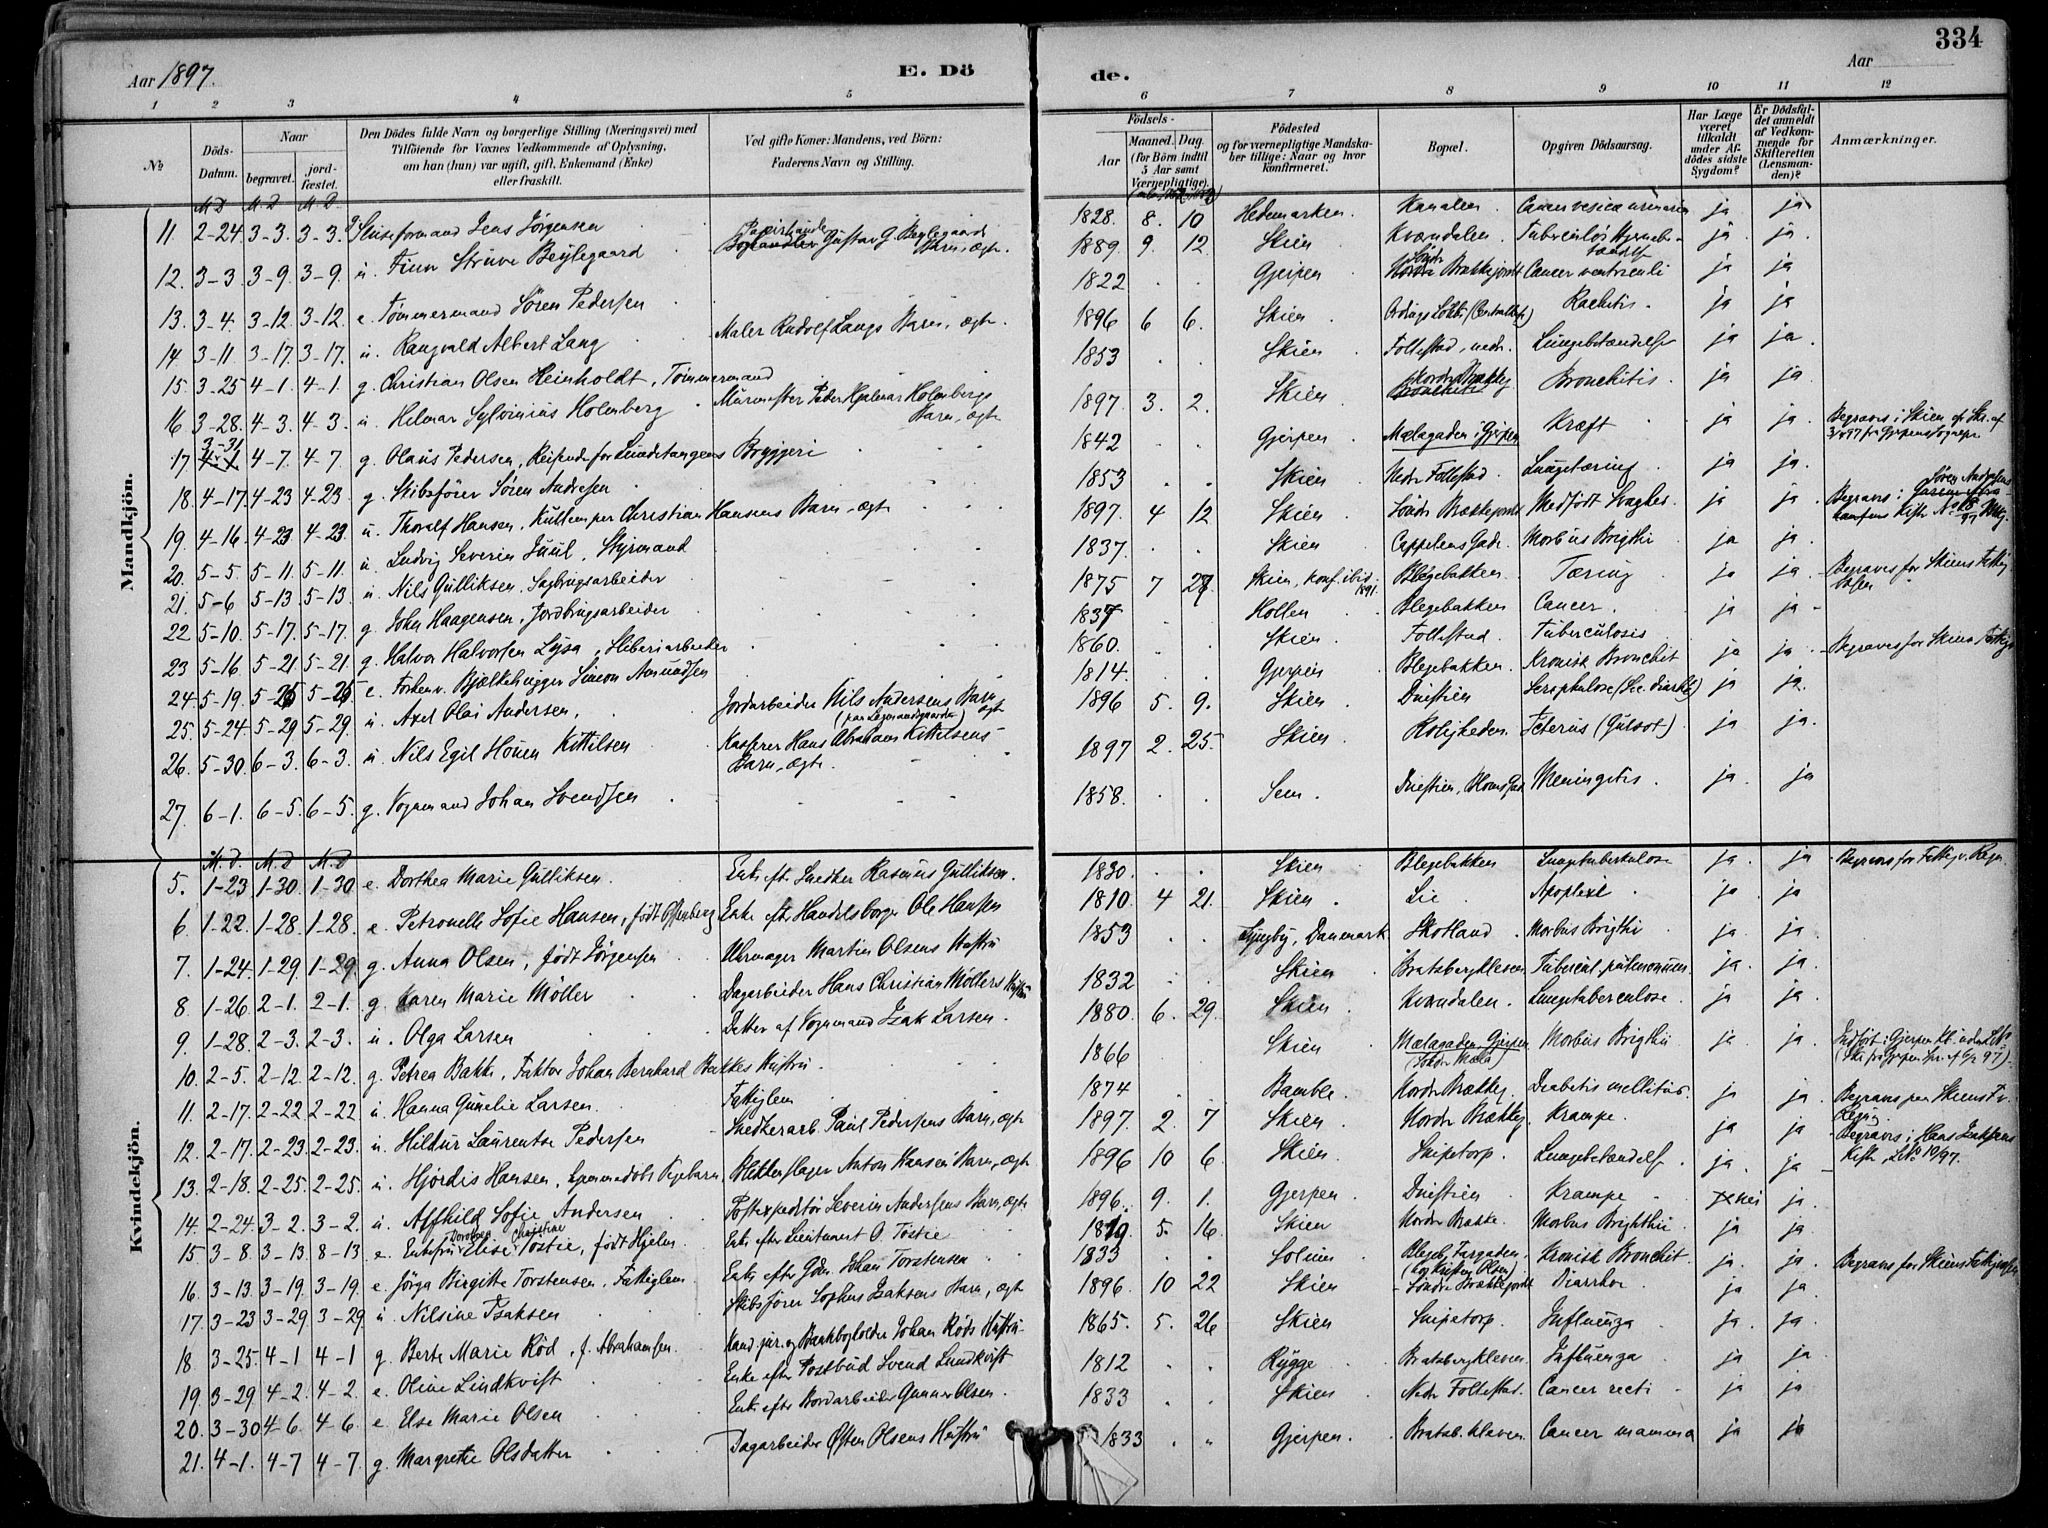 334
Aar 1897.
E. Dö
de.
Aar
1 2 3 4 5 6 7 8 9 10 11 12
№
Döds-Datum.
Naar
begravet.
jordfæstet.
Den Dödes fulde Navn og borgerlige Stilling (Næringsvei) med Tilföiende for Voxnes Vedkommende af Oplysning, om han (hun) var ugift, gift, Enkemand (Enke) eller fraskilt.
Ved gifte Koner: Mandens, ved Börn: Faderens Navn og Stilling.
Födsels-
Aar
Maaned. Dag.
(for Börn indtil 5 Aar samt Værnepligtige).
Födested og for værnepligtige Mandskaber tillige: Naar og hvor Konfirmeret.
Bopæl.
Opgiven Dödsaarsag.
Har Læge været tilkaldt under Afdödes sidste Sygdom?
Er Dödsfaldet anmeldt af Vedkommende for Skifteretten (Lensmanden)?
Anmærkninger.
Mandkjön.
M. D. M. D. M. D.
11. 2-24. 3-3. 3-3. g. Sluseformand Jens Jörgensen 1828. 8. 10 Hedemarken. Kanalen. Cancer vesicæ urinariæ ja ja
12. 3-3. 3-9. 3-9. u. Finn Struve Beylegaard Gustav G. Beylegaards Barn, ægte. 1889. 9. 12. Skien Kverndalen. ja ja.
13. 3-4. 3-12. 3-12. e. Tömmermand Sören Pedersen 1822 Gjerpen Brækkejordet Cancer ventriculi ja ja
14 3-11. 3-17. 3-17. u. Rangvald Albert Lang Maler Rudolf Langs Barn, ægte. 1896 6 6. Skien Rachitis. ja ja
15. 3-25 4-1. 4-1. g. Christian Olsen Heinholdt, Tömmermand 1853 Skien Follestad, nedr. Lungebetændelse ja ja.
16 3-28. 4-3. 4-3. u. Hilmar Sylvinius Holmberg Murmester Peder Hjalmar Holmbergs Barn, ægte 1897. 3. 2. Skien Nordre Brækkej. Bronchitis. ja ja
17 3-31 4-7. 4-7. g. Olaus Pedersen, Reisende for Lundetangens Bryggeri 1842 Gjerpen Mælagaden i Gjerpen Kræft ja ja. Begraves i Skien
18. 4-17. 4-23 4-23. g. Skibsförer Sören Andresen 1853. Skien Nedr. Follestad. Lungetæring. ja ja.
19. 4-16. 4-23. 4-23. u. Thoralf Hansen, Christian Hansens Barn, ægte 1897. 4 12. Skien Söndr. Brækkejordet Medfödt Svaghed. ja ja Begraves i Sören Andresens Kiste No 18/97
20. 5-5. 5-11. 5-11. u. Ludvig Severin Juul, Styrmand 1837. Skien Cappelens Gade. Morbus Brigthi ja ja.
21. 5-6 5-13 5-13. u. Nils Gulliksen, Sagbrugsarbeider 1875 7 27 Skien, konf. ibid. 1891. Blegebakken. Tæring ja ja. Begraves for Skiens Fattigvæsen
22 5-10. 5-17. 5-17. g. John Haagensen, Jordbrugsarbeider 1837 Hollen Blegebakken Cancer. ja ja
23 5-16. 5-21. 5-21. g. Halvor Halvorsen Lysa, Sliberiarbeider 1860. Skien. Follestad. Tuberculosis
24. 5-19. 5-25 5-25 e. Forhenv. Bjælkehugger Simon Amundsen 1814. Gjerpen Blegebakken. Kronisk Bronchit ja ja. Begraves for Skiens Fattigv.
25. 5-24. 5-29 5-29. u. Axel Olai Andersen, Jordarbeider Nils Andersens Barn, ægte 1896 5. 9. Skien Duestien ja ja.
26. 5-30. 6-3. 6-3. u. Nils Egil Houen Kittilsen Kasserer Hans Abraham Kittilsens Barn, ægte. 1897 2. 25. Skien Roligheden. Icterus (Gulsot). ja ja.
27. 6-1. 6-5. 6-5. g. Vognmand Johan Svendsen 1858. Sem. Duestien, Meningitis. ja. ja
Kvindekjön.
M. D. M. D. M. D.
5. 1-23 1-30. 1-30 e. Dorthea Marie Gulliksen. Enke eft. Snedker Rasmus Gulliksen. 1830. Skien Blegebakken Lungetuberkulose ja. ja Begraves for Fattigv. Regn.
6 1-22. 1-28. 1-28. e. Petronelle Sofie Hansen, födt Enke efter Handelsborger Ole Hansen 1810. 4 21. Skien. Lie Apoplexi ja ja
7. 1-24. 1-29. 1-29 g. Anna Olsen, födt Jörgensen Uhrmager Martin Olsens Hustru 1853 Lyngby, Danmark Skotland Morbus Brigthi ja ja.
8 1-26. 2-1. 2-1. g. Karen Marie Möller Dagarbeider Hans Christian Möllers Hustru 1832 Skien Bratsbergkleven Tubercul. pulmonum. ja. ja
9. 1-28. 2-3. 2-3. u. Olga Larsen Datter af Vognmand Isak Larsen. 1880. 6. 29. Skien Kverndalen. Lungetuberculose. ja ja.
10. 2-5. 2-12 2-12. g. Petrea Bakke, Faktor Johan Bernhard Bakkes Hustru. 1866 Skien Mælagaden, Gjerpen (Söndre Mæla) Morbus Brigthii ja ja.
11. 2-17. 2-22 2-22 u. Hanna Gunelie Larsen. Fattiglem 1874 Bamble. Nordr. Brækkej. Diabetis mellitus. ja ja.
12. 2-17. 2-23. 2-23. u. Hildur Laurentse Pedersen Snedkerarb. Paul Pedersens Barn, ægte 1897. 2. 7 Skien Nordr. Brækkej. Krampe. ja ja
13. 2-18. 2-25. 2-25. u. Hjördis Hansen, Blikkenslager Anton Hansens Barn, ægte 1896 10 6. Skien. Snipetorp. Lungebetændelse. ja. ja Begraves i Hans Isaksens Kiste, L. No 10/97.
14. 2-24. 3-2. 3-2. u. Sofie Andersen Postexpeditör Severin Andersens Barn, ægte 1896. 9. 1. Gjerpen Duestien Krampe nei ja
15. 3-8. 3-13. 8-13. e. Enkefru Elise Dorothea Christine Tostie, födt Hjelm. Enke efter Lieutenant O. Tostie 1819. 5. 16. Skien Nordr. Brække. Morbus Brigthii ja ja
16. 3-13. 3-19. 3-19. e. Jörga Birgitte Torstensen, Fattiglem Enke efter Johan Torstensen 1833 Solum Kronisk Bronchit. ja. ja. Begraves for Skiens Fattigvæsen
17. 3-23 3-29 3-29 u. Nilsine Isaksen Skibsförer Sophus Isaksens Barn, ægte 1896 10 22 Skien Söndre Brækkejordet Diarrhoe ja ja
18. 3-25. 4-1 4-1 g. Berte Marie Röd, f. Abrahamsen. Kand. jur. og Bankbogholder Johan Röds Hustru. 1865. 5. 26 Skien Snipetorp. Influenza ja. ja.
19. 3-29 4-2. 4-2. e. Oline Lindkvist Enke efter Postbud Svend Lundkvist 1812 Rygge Bratsbergkleven. Influenza ja ja
20. 3-30 4-6 4-6 e. Else Marie Olsen Enke efter Bordarbeider Gunner Olsen. 1833 Skien Nedr. Follestad. Cancer recti ja ja
21. 4-1. 4-7 4-7. g. Margrethe Olsdatter Dagarbeider Östen Olsens Hustru 1833 Gjerpen. Bratsb. kleven Cancer mamma ja ja